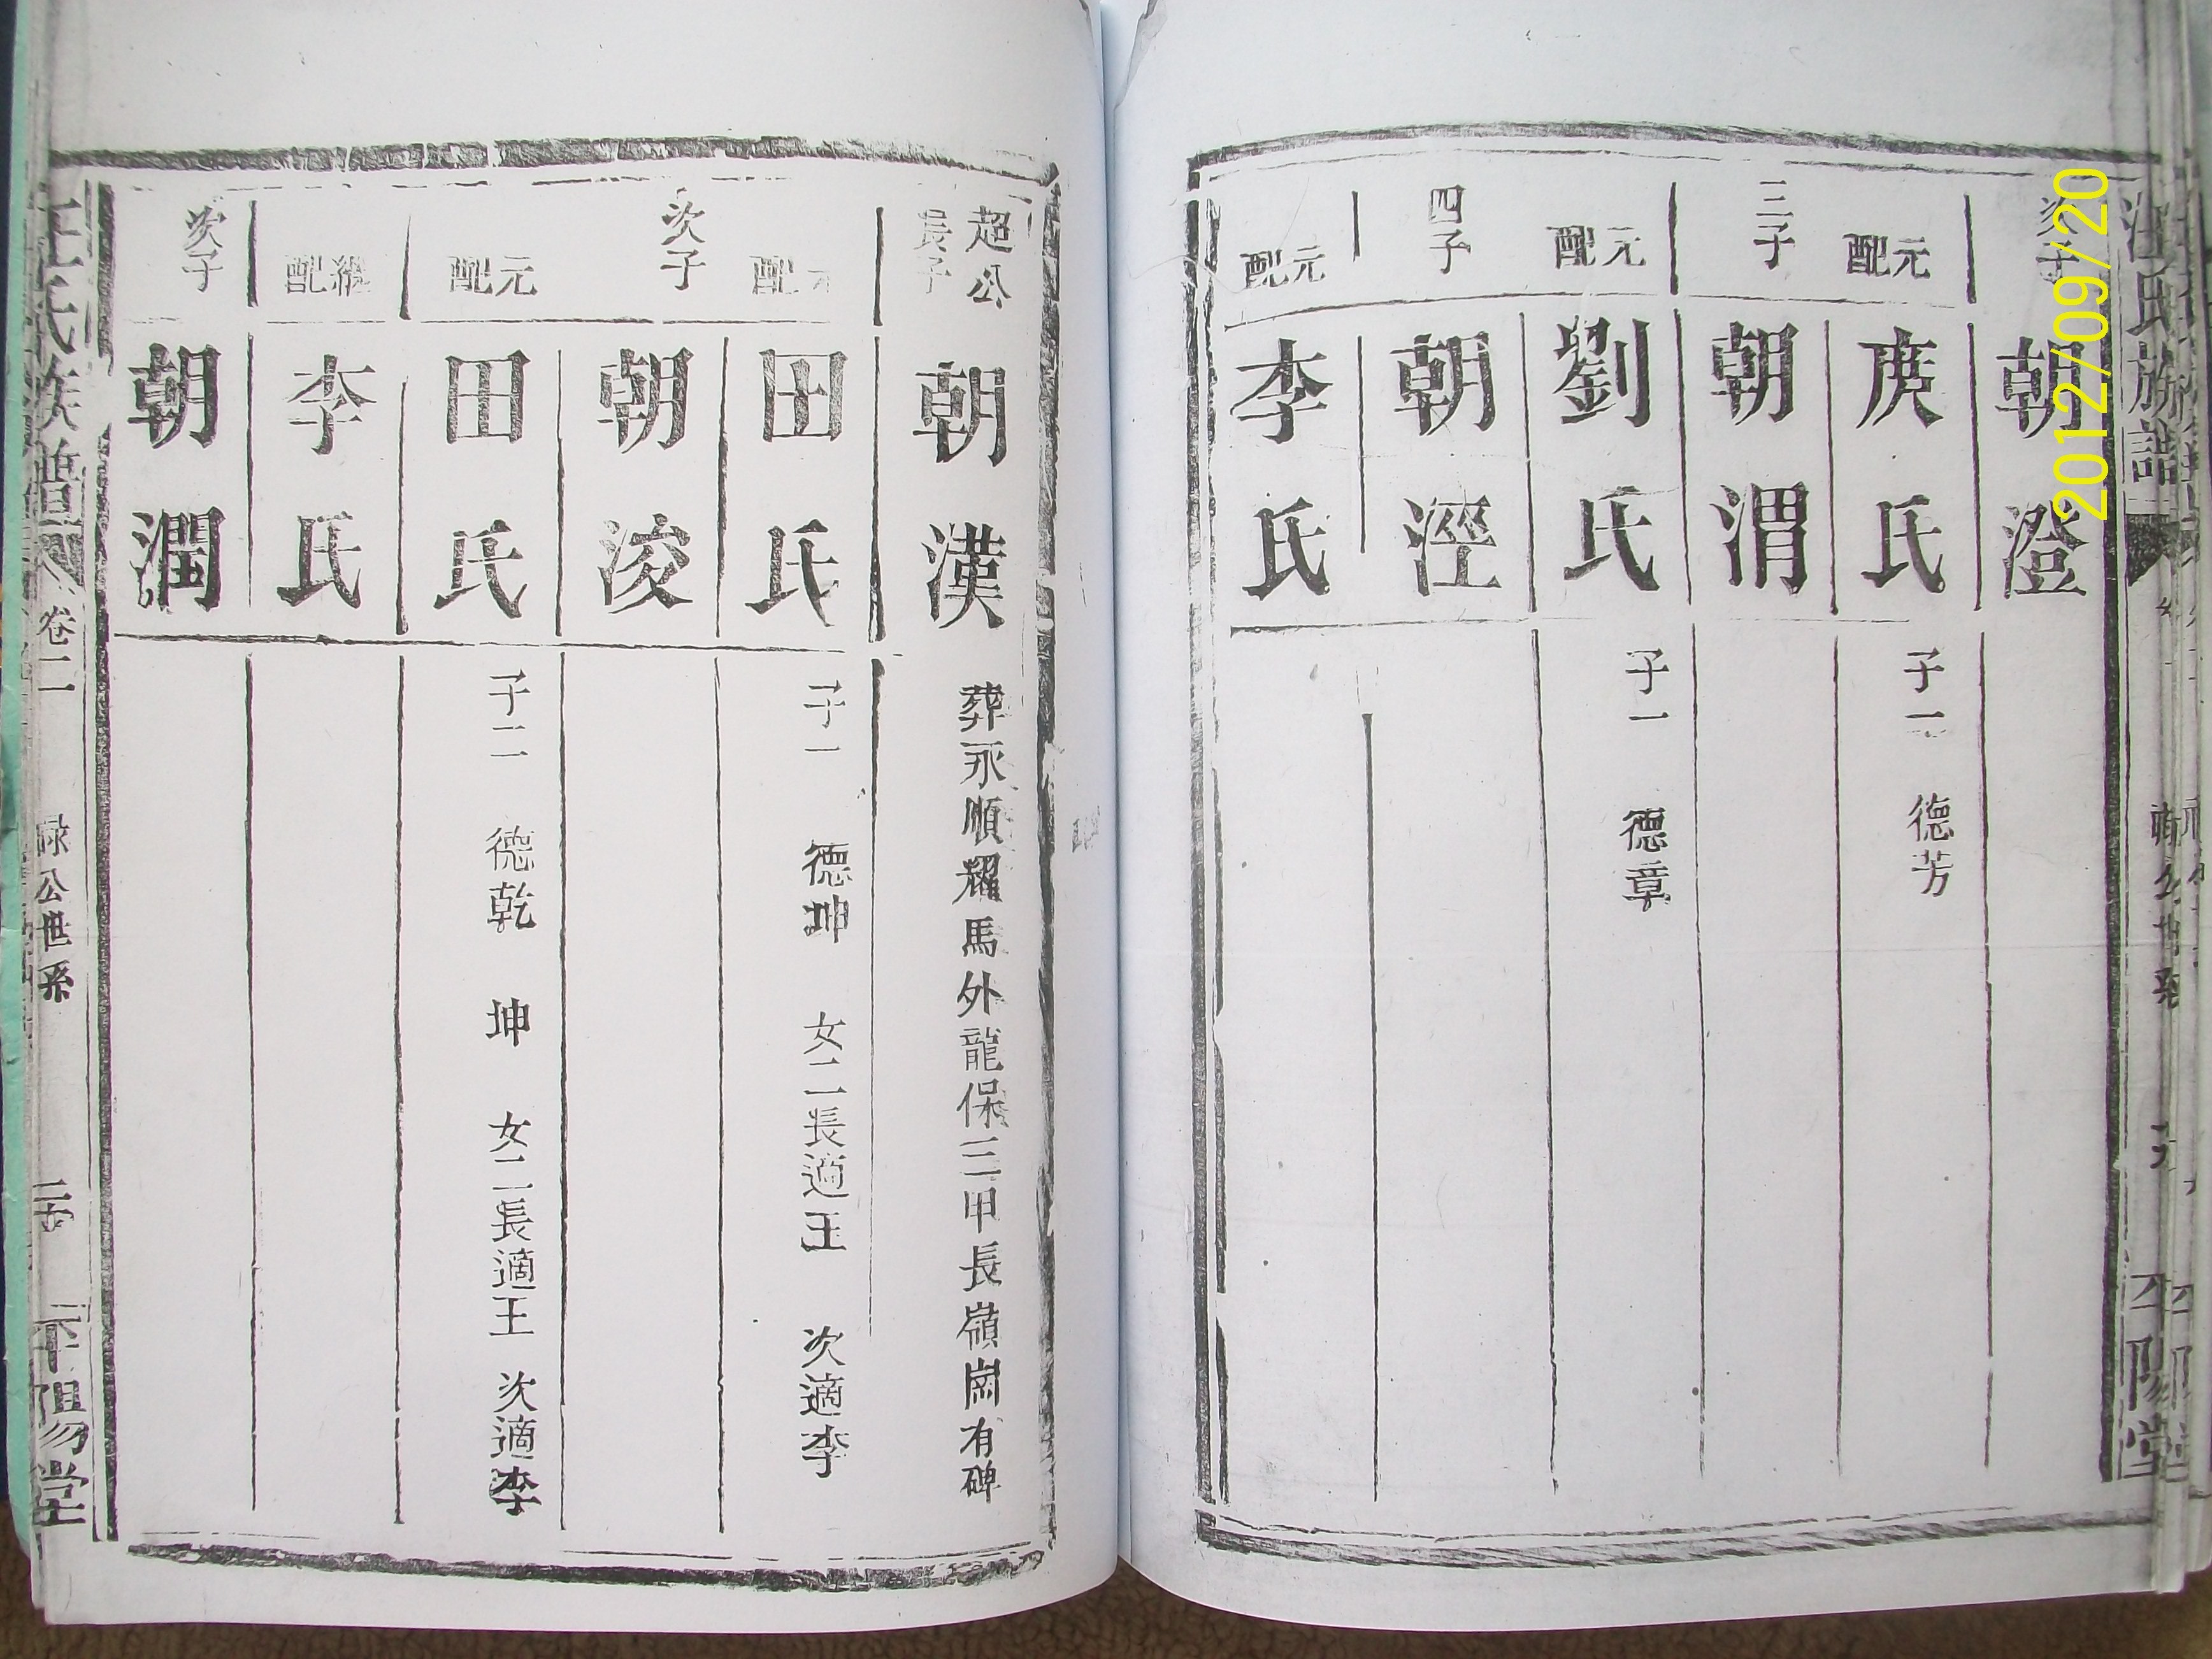 汪氏族譜
平陽堂
次子
朝澄
元配
庹氏
子一 德芳
三子
朝渭
元配
劉氏
子一 德章
四子
朝涇
元配
李氏
超公
長子
朝漢
葬永順耀馬外龍保三甲長嶺崗有碑
田氏
子一 德坤 女二長適王 次適李
次子
朝浚
元配
田氏
子二 德乾 坤 女二長適王 次適李
繼配
李氏
次子
朝潤
汪氏族譜
卷二
公世系
平陽堂
2012/09/20